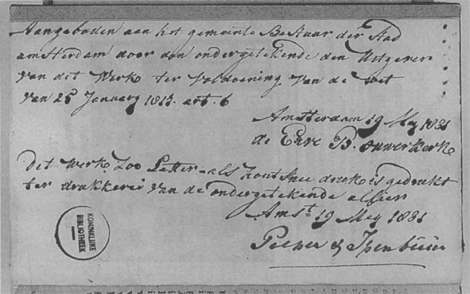 Aangeboden aan het gemeente Bestuur der Stad
Amsterdam door den ondergetekende den Uitgever
van dit Werk ter voldoening van de wet
van 25 January 1817. art. 6
Amsterdam 19 Mey 1831
de Erve B. Ouwerkerk
Dit werk zoo Letter- als houtsnee druk is gedrukt
ter drukkerij van de ondergetekende alhier
Amst 19 Mey 1831
& Ipenbuur
KONINKLIJKE
BIBLIOTHEEK